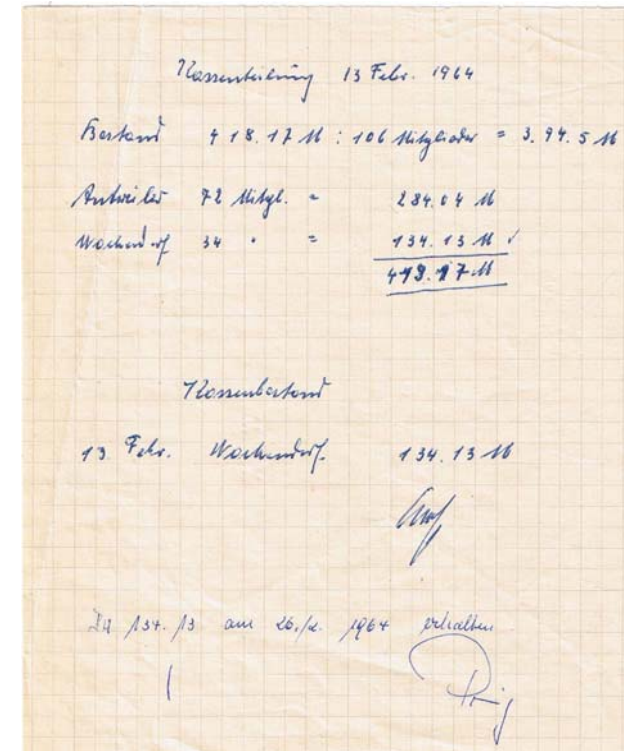 Kassenteilung 13 Febr. 1964
Bestand 418.17 M : 106 Mitglieder = 3.94.5 M
Antweiler 72 Mitgl. = 284.04 M
Wachendorf 34 " = 134.13 M ✓
418.17 M
Kassenbestand
13. Febr. Wachendorf. 134.13 M
134.13 am 26./2. 1964 erhalten